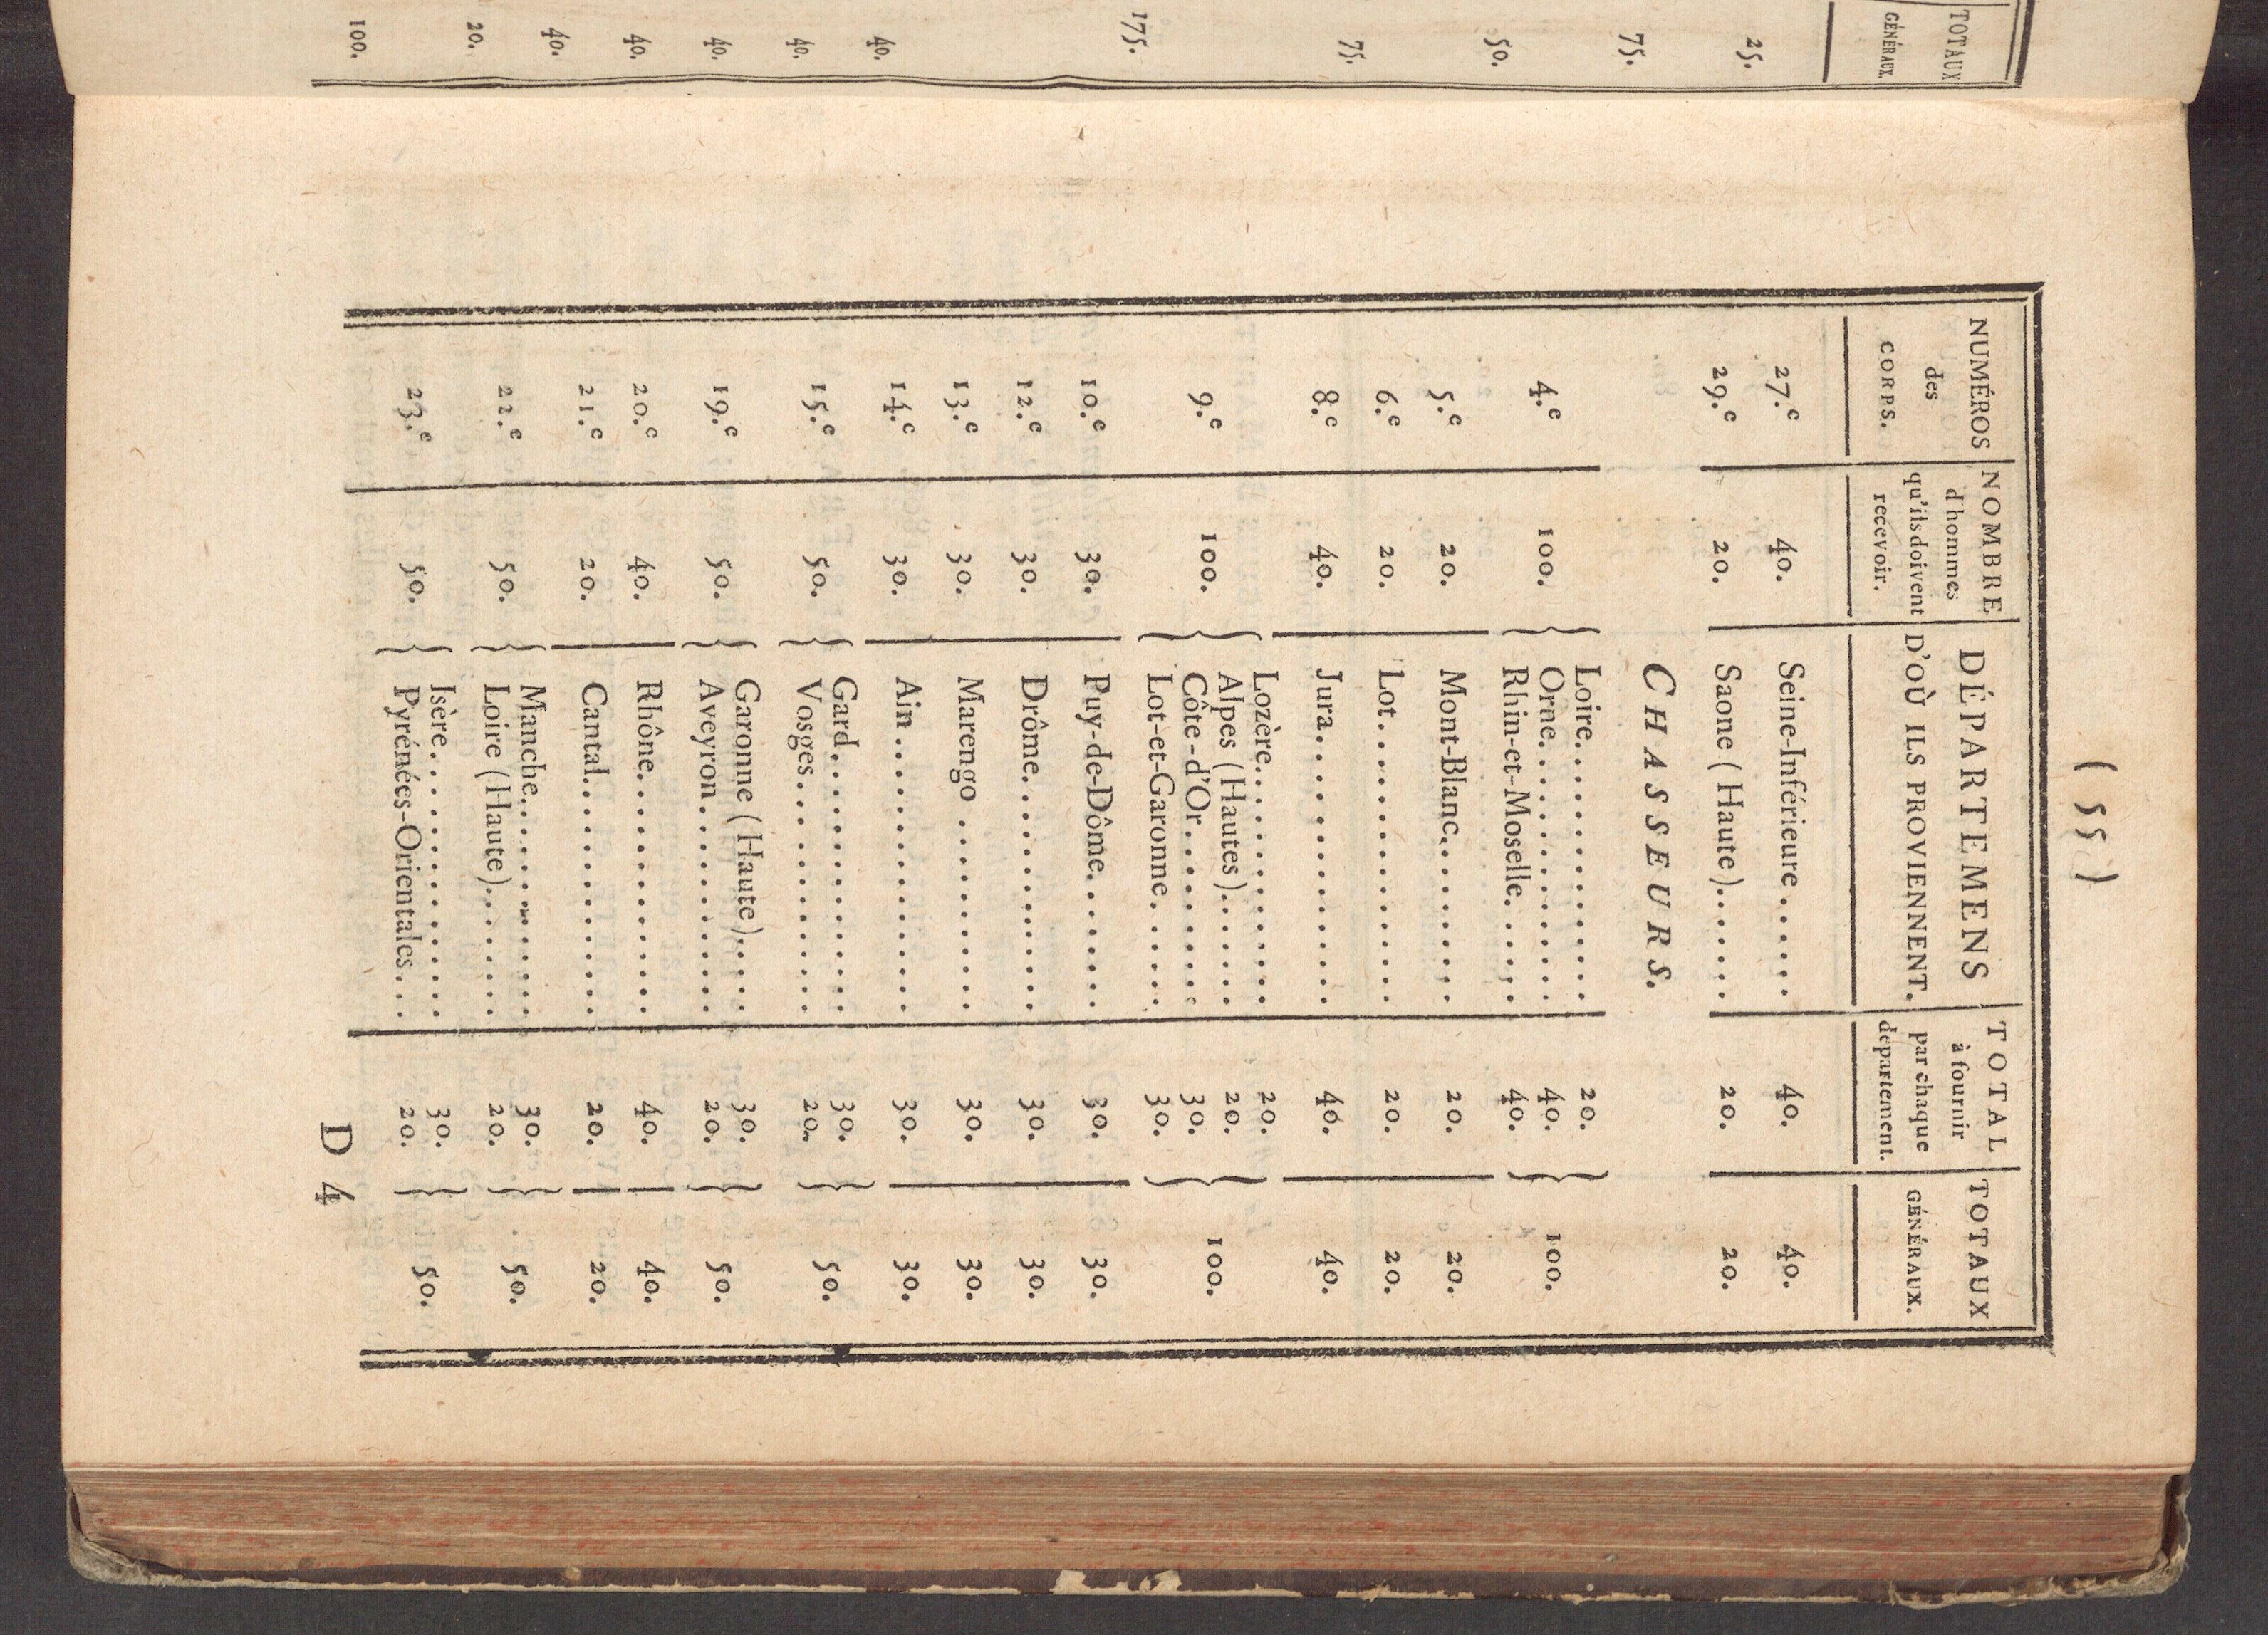 TOTAUX
GÉNÉRAUX.
25.
75.
50.
75.
175.
40.
40.
40.
40.
40.
20.
100.
( 55 )
NUMÉROS des CORPS. NOMBRE d'hommes qu'ils doivent recevoir. DÉPARTEMENS D'OÙ ILS PROVIENNENT. TOTAL à fournir par chaque departement. TOTAUX GÉNÉRAUX.
27.e 40. Seine-Inférieure...... 40. 40.
29.e 20. Saone (Haute)....... 20. 20.
CHASSEURS.
Loire............. 20.
4.e 100. Orne............. 40. 100.
Rhin-et-Moselle...... 40.
5.e 20. Mont-Blanc......... 20. 20.
6.e 20. Lot.............. 20. 20.
8.e 40. Jura............. 40. 40.
Lozère............ 20.
9.e 100. Alpes (Hautes)....... 20. 100.
Côte-d'Or.......... 30.
Lot-et-Garonne....... 30.
10.e 30. Puy-de-Dôme........ 30. 30.
12.e 30. Drôme............ 30. 30.
13.e 30. Marengo.......... 30. 30.
14.e 30. Ain............. 30. 30.
15.e 50. Gard............. 30. 50.
Vosges............ 20.
19.e 50. Garonne (Haute)...... 30. 50.
Aveyron........... 20.
20.e 40. Rhône............ 40. 40.
21.e 20. Cantal............ 20. 20.
22.e 50. Manche........... 30. 50.
Loire (Haute)........ 20.
23.e 50. Isère............. 30. 50.
Pyrénées-Orientales... 20.
D 4